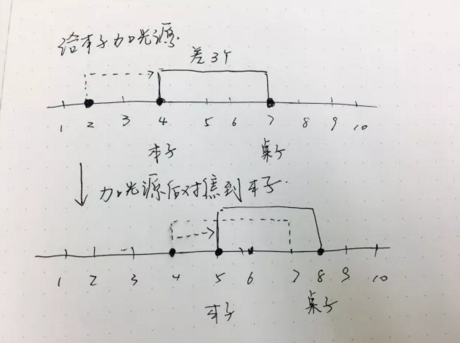 给本子加光源
差3个
1 2 3 4 5 6 7 8 9 10
本子 桌子
加光源后对焦到本子
1 2 3 4 5 6 7 8 9 10
本子 桌子